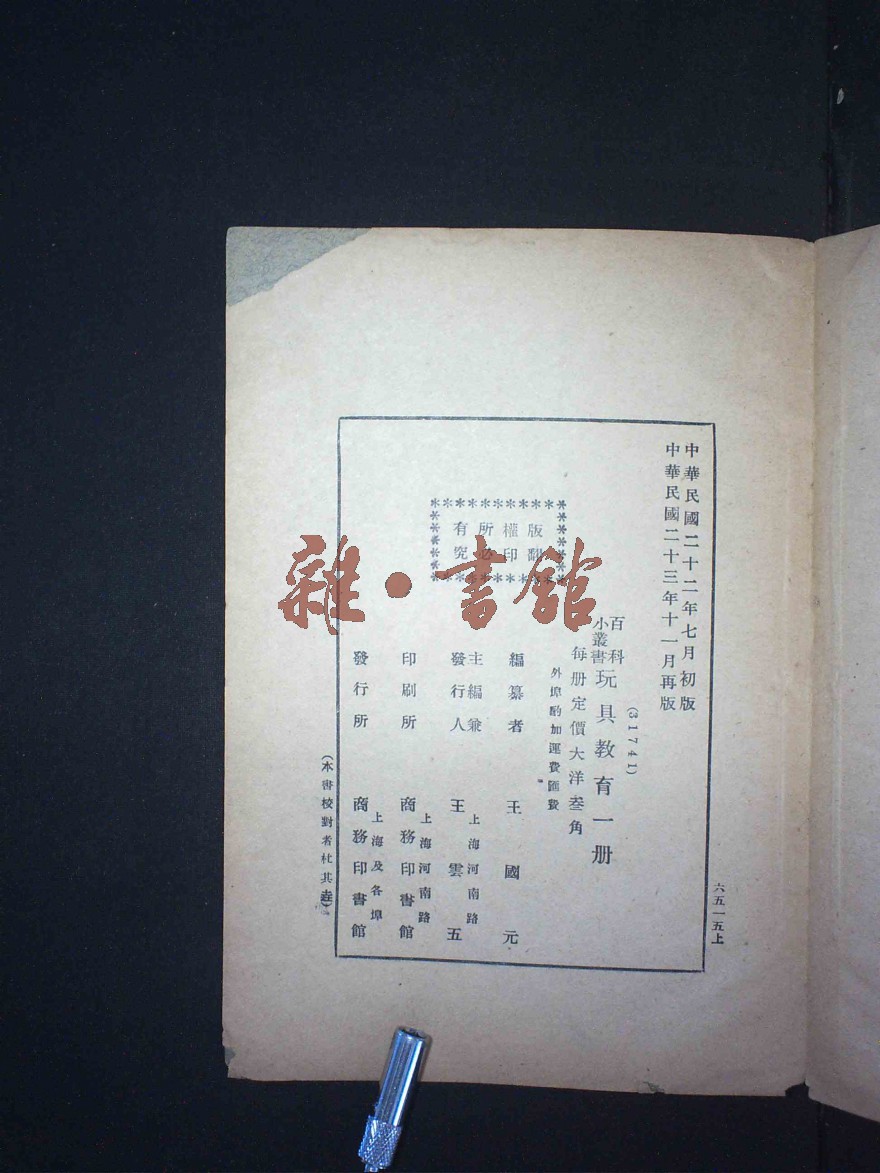 中華民國二十二年七月初版
中華民國二十三年十一月再版
(31741)
百科
小叢書
玩具教育一册
每册定價大洋叁角
外埠酌加運費匯費
版權所有
翻印必究
編纂者 王國元
主編兼
發行人 王雲五
上海河南路
印刷所 商務印書館
上海河南路
發行所 商務印書館
上海及各埠
(本書校對者杜其垚)
六五一五上
雜·書館